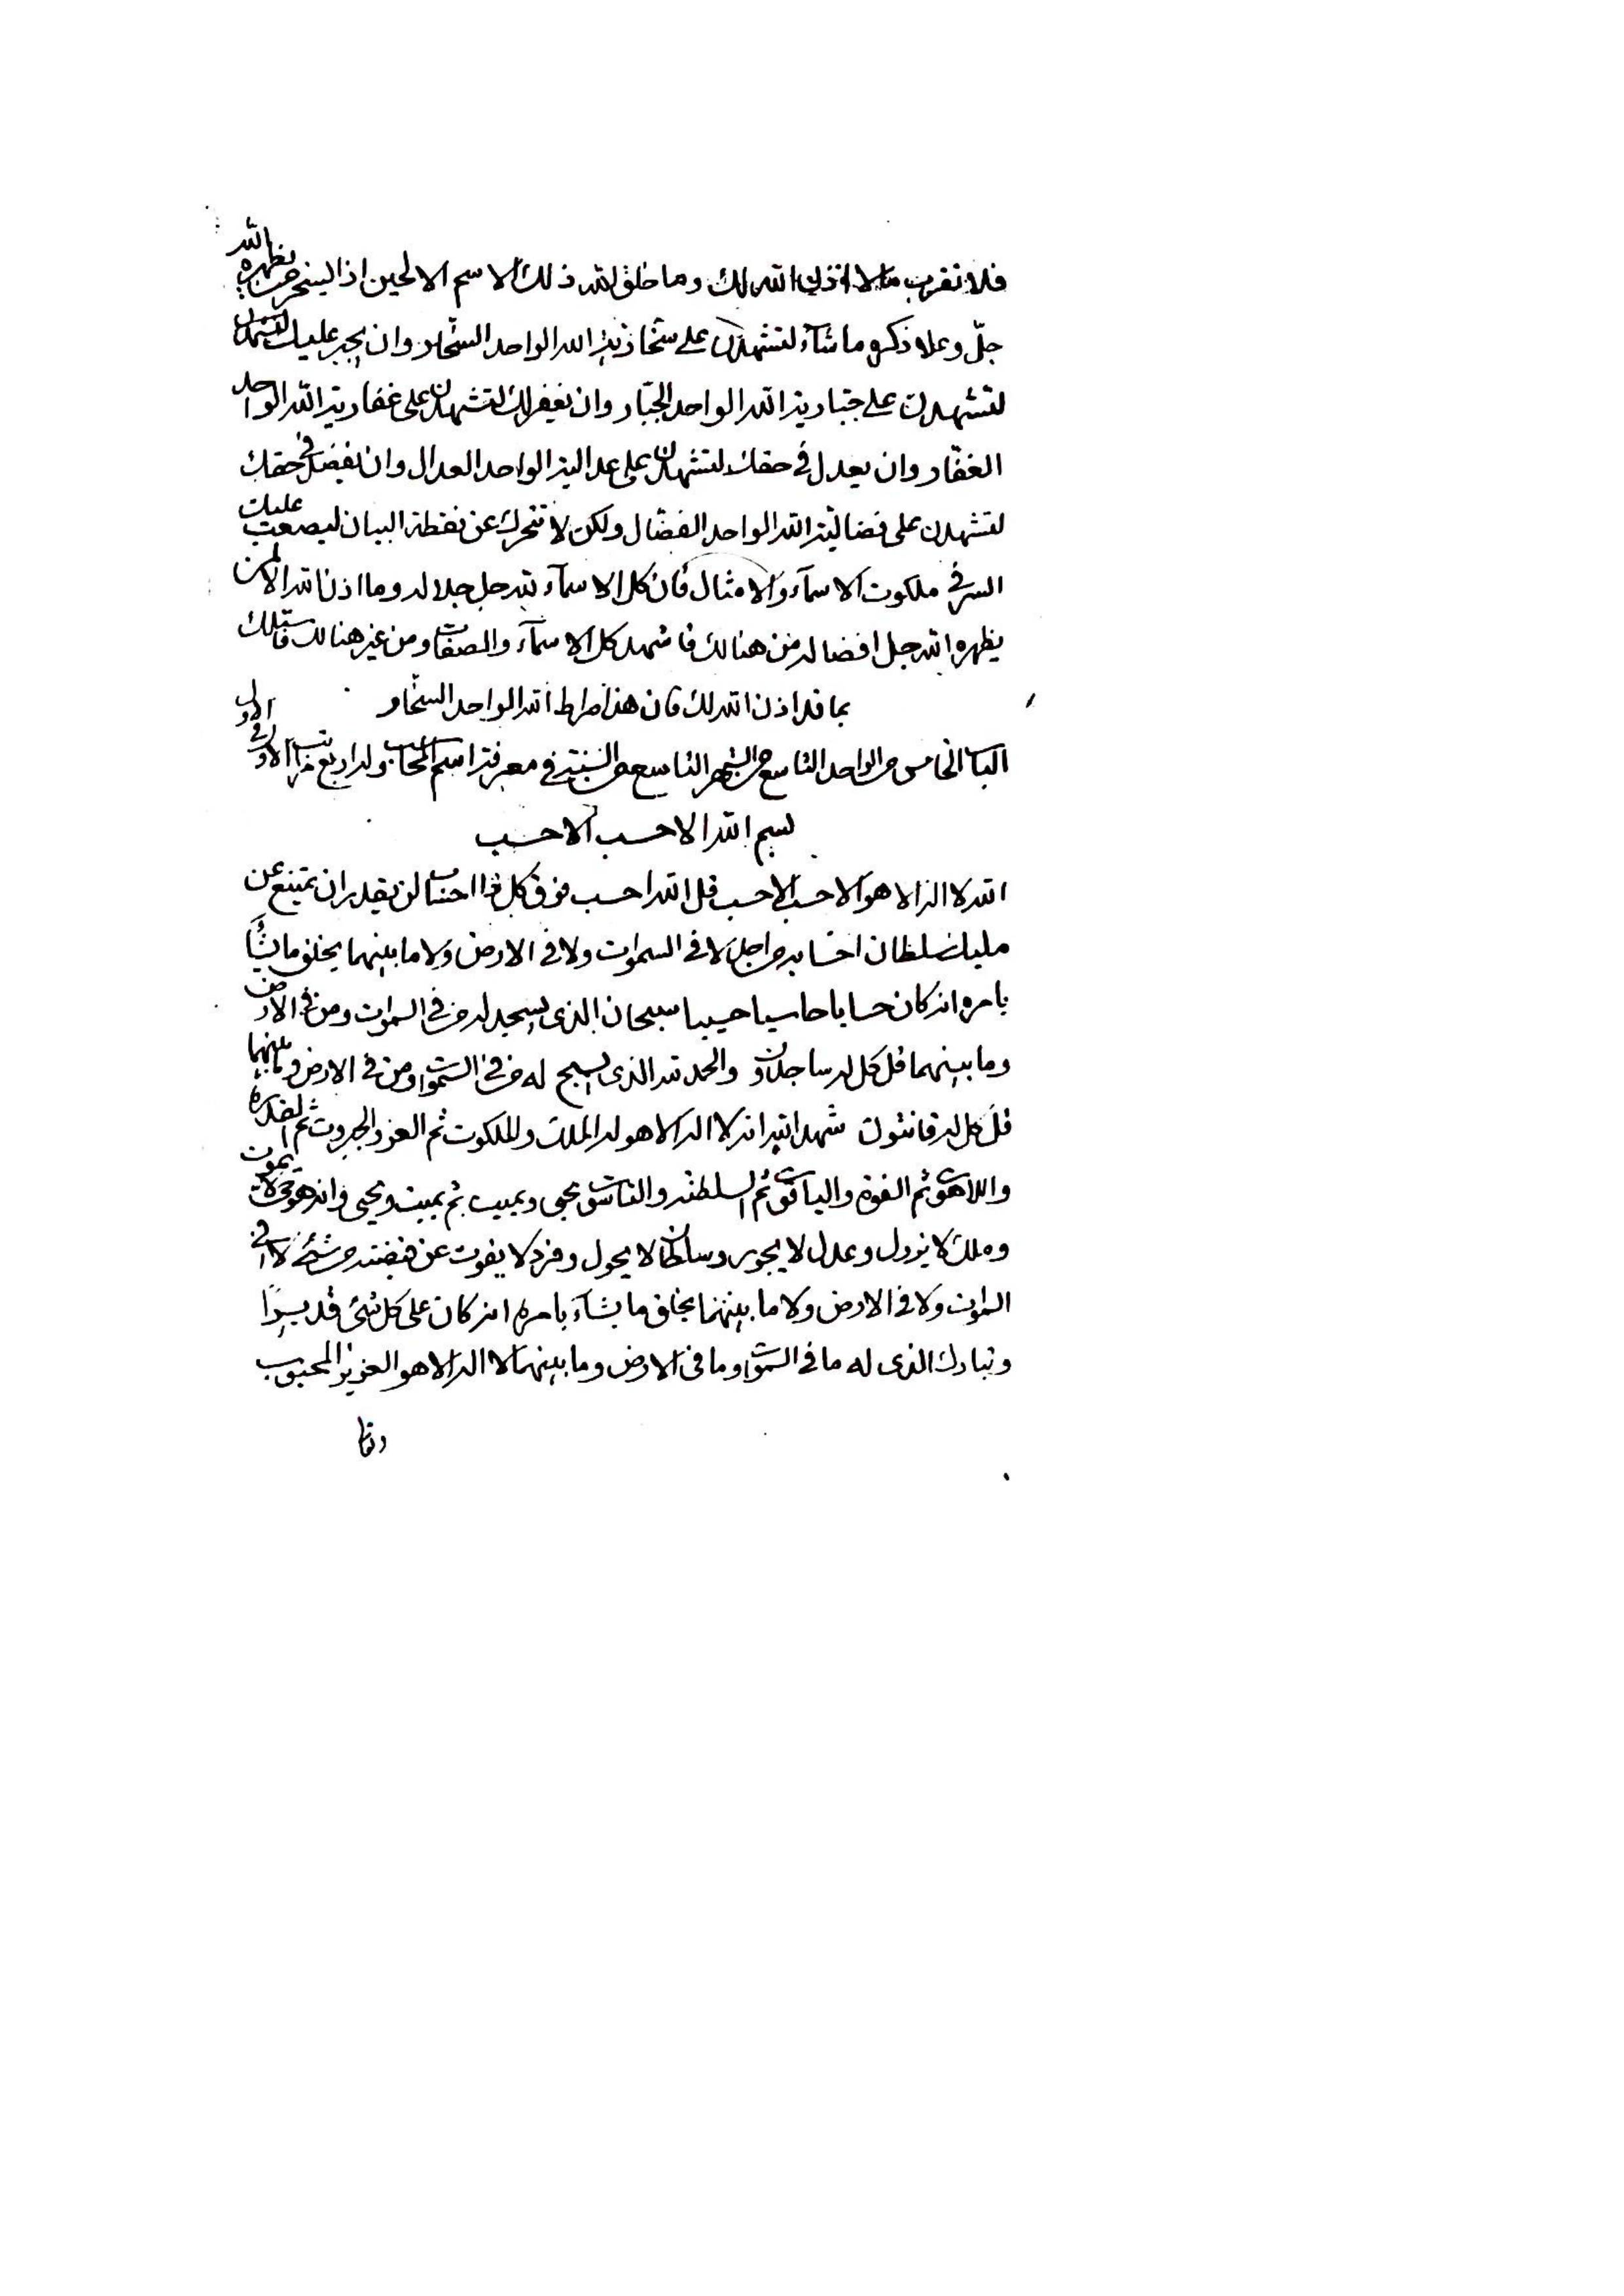 فلا تقرب ما لا اذن الله لك وما خلق الله ذلك الاسم الا لحين اذا ليسخر من يظهره الله
جلّ وعلا ذكره ما شآء لتشهدن على سخّاريّة الله الواحد السخّار وان يجبر عليك لتشهدن
لتشهدن على جبّارية الله الواحد الجبّار وان يغفر لك لتشهدن على غفارية الله الواحد
الغفّار وان يعدل في حقك لتشهدن على عدالية الواحد العدال وان يفضل في حقك
لتشهدن على فضاليّة الله الواحد الفضّال ولكن لا تتحرك عن نقطة البيان ليصعب عليك
السر في ملكوت الاسمآء والامثال فان كل الاسمآء لله جل جلاله وما اذن الله الا لمن
يظهره الله جل افضاله فمن هنالك فاشهد كل الاسمآء والصفات ومن غير هنالك فاستلك
بما قد اذن الله لك فان هذا صراط الله الواحد السخّار
الباب الخامس من الواحد التاسع من الشهر التاسع من السنة في معرفة اسم الحاسب وله اربع مراتب الاول في الاول
بسم الله الاحسب الاحسب
الله لا اله الا هو الاحسب الاحسب قل الله احسب فوق كل ذا احساب لن يقدر ان يمتنع عن
مليك سلطان احسابه من احد لا في السموات ولا في الارض ولا ما بينهما يخلق ما يشآء
بامره انه كان حسابا حاسبا حسيبا سبحان الذي يسجد له من في السموات ومن في الارض
وما بينهما قل كل له ساجدون والحمد لله الذي يسبح له من في السموات ومن في الارض وما بينهما
قل كل له قانتون شهد الله انه لا اله الا هو له الملك والملكوت ثم العز والجبروت ثم القدرة
واللاهوت ثم القوة والياقوت ثم السلطنة والناسوت يحيى ويميت ثم يميت ويحيى وانه هو حي لا يموت
وملك لا يزول وعدل لا يجور وسلطان لا يحول وفرد لا يفوت عن قبضته من شيء لا في
السموات ولا في الارض ولا ما بينهما يخلق ما يشآء بامره انه كان على كل شئ قديرًا
وتبارك الذي له ما في السموات وما في الارض وما بينهما لا اله الا هو العزيز المحبوب